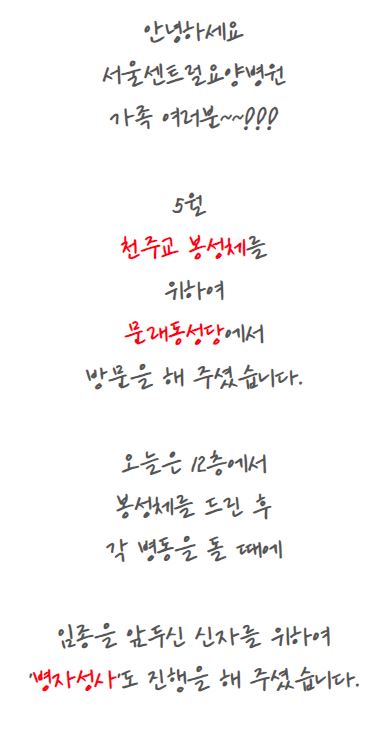 안녕하세요
서울센트럴요양병원
가족 여러분~~!!!
5월
천주교 봉성체를
위하여
문래동성당에서
방문을 해 주셨습니다.
오늘은 12층에서
봉성체를 드린 후
각 병동을 돌 때에
임종을 앞두신 신자를 위하여
'병자성사'도 진행을 해 주셨습니다.